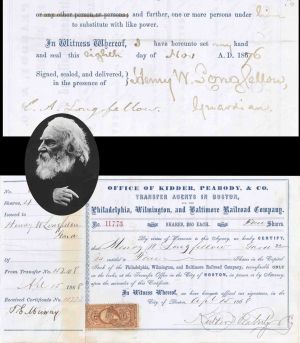 or any other person or persons and further, one or more persons under him
to substitute with like power.
In Witness Whereof, I have hereunto set my hand
and seal this eighth day of Nov A.D. 1876
Signed, sealed, and delivered,
in the presence of
Henry W. Longfellow,
Guardian.
OFFICE OF KIDDER, PEABODY, & CO.
TRANSFER AGENTS IN BOSTON,
Philadelphia, Wilmington, and Baltimore Railroad Company.
No. 11773
SHARES, $50 EACH.
Four Shares
Shares, 4
Issued to
Henry W Longfellow
From Transfer No.
Received Certificate No.
By virtue of Warrant to this Agency, we hereby CERTIFY,
that Henry W Longfellow
is entitled to Four Shares in the Capital
Stock of the Philadelphia, Wilmington, and Baltimore Railroad Company, transferable ONLY
on the Books, at the Transfer Office in the City of BOSTON, in person or by Attorney
upon the surrender of this Certificate.
In Witness Whereof, we have hereunto affixed our signature, in the
City of Boston,
Kidder Peabody & Co